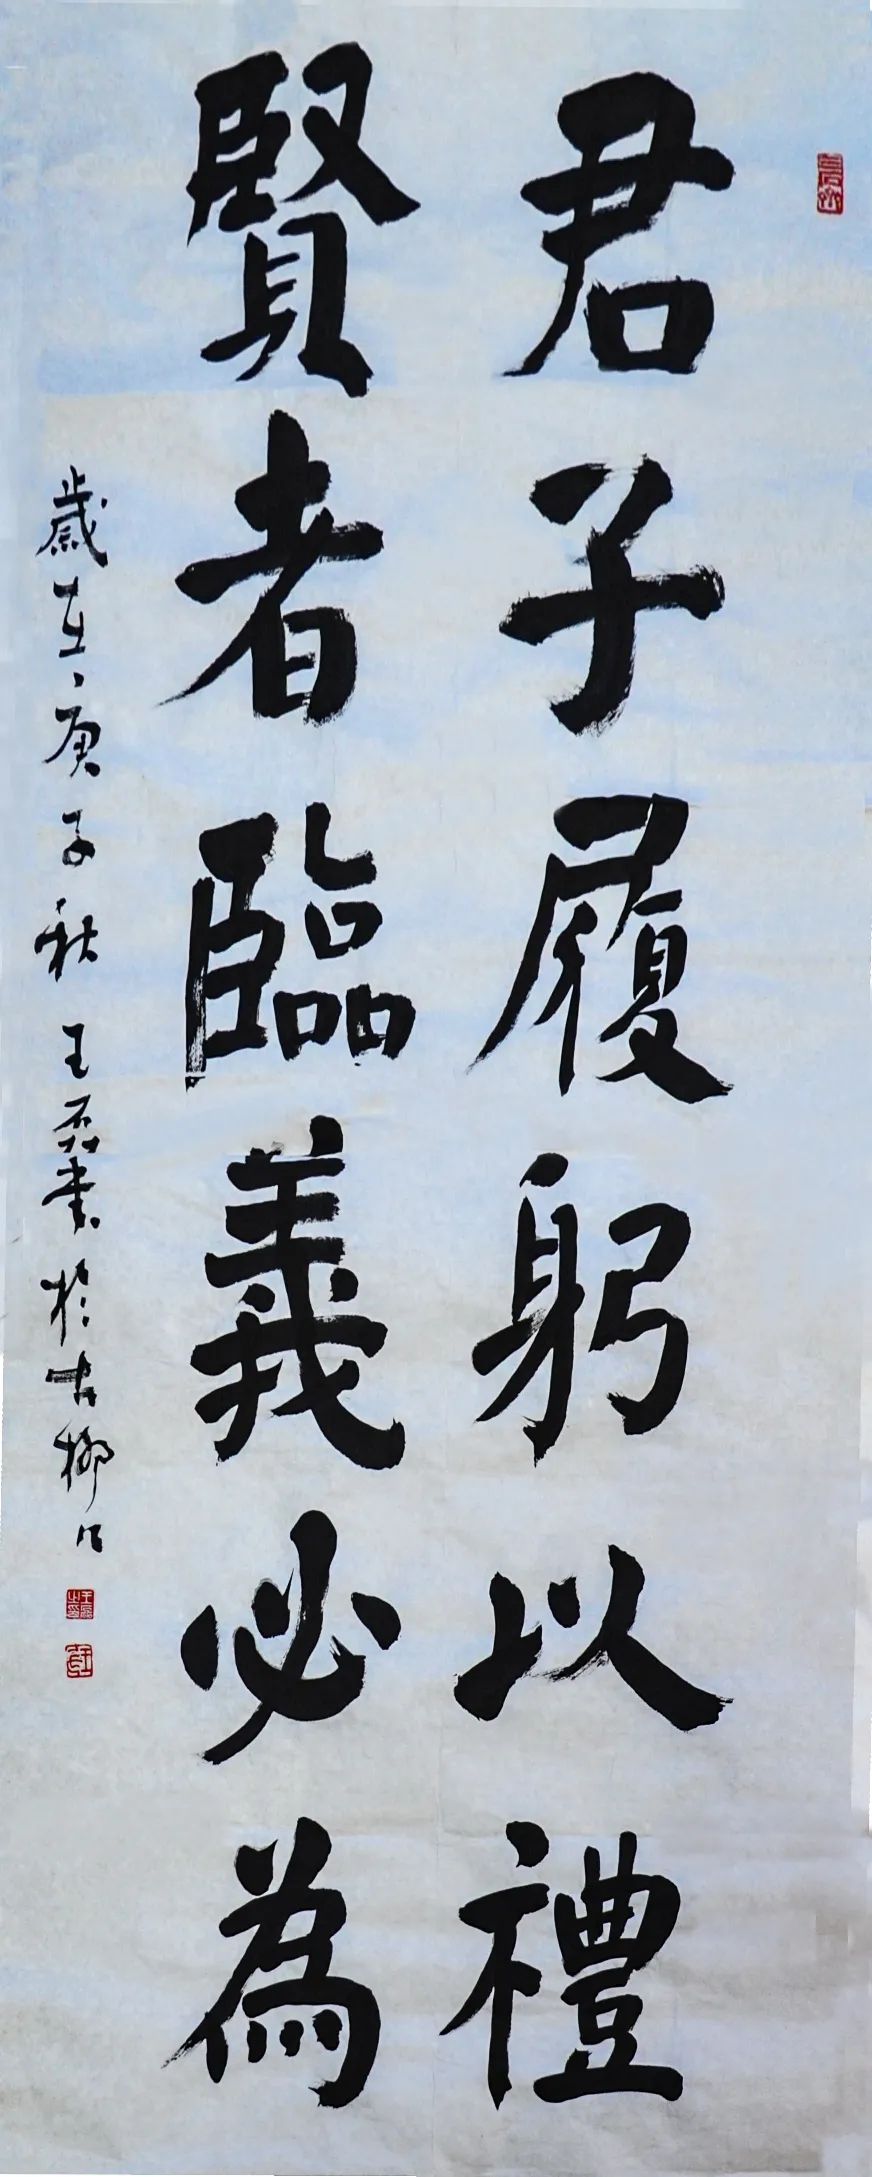 君子履躬以禮
賢者臨義必為
歲在庚子秋 王磊書於古柳